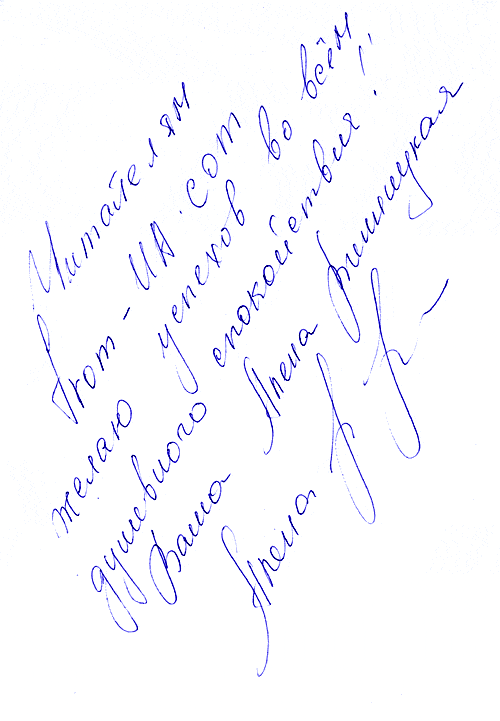 Читателям
from-UA.com
желаю успехов во всём,
душевного спокойствия!
Ваша Ирена Вишницкая
Ирена